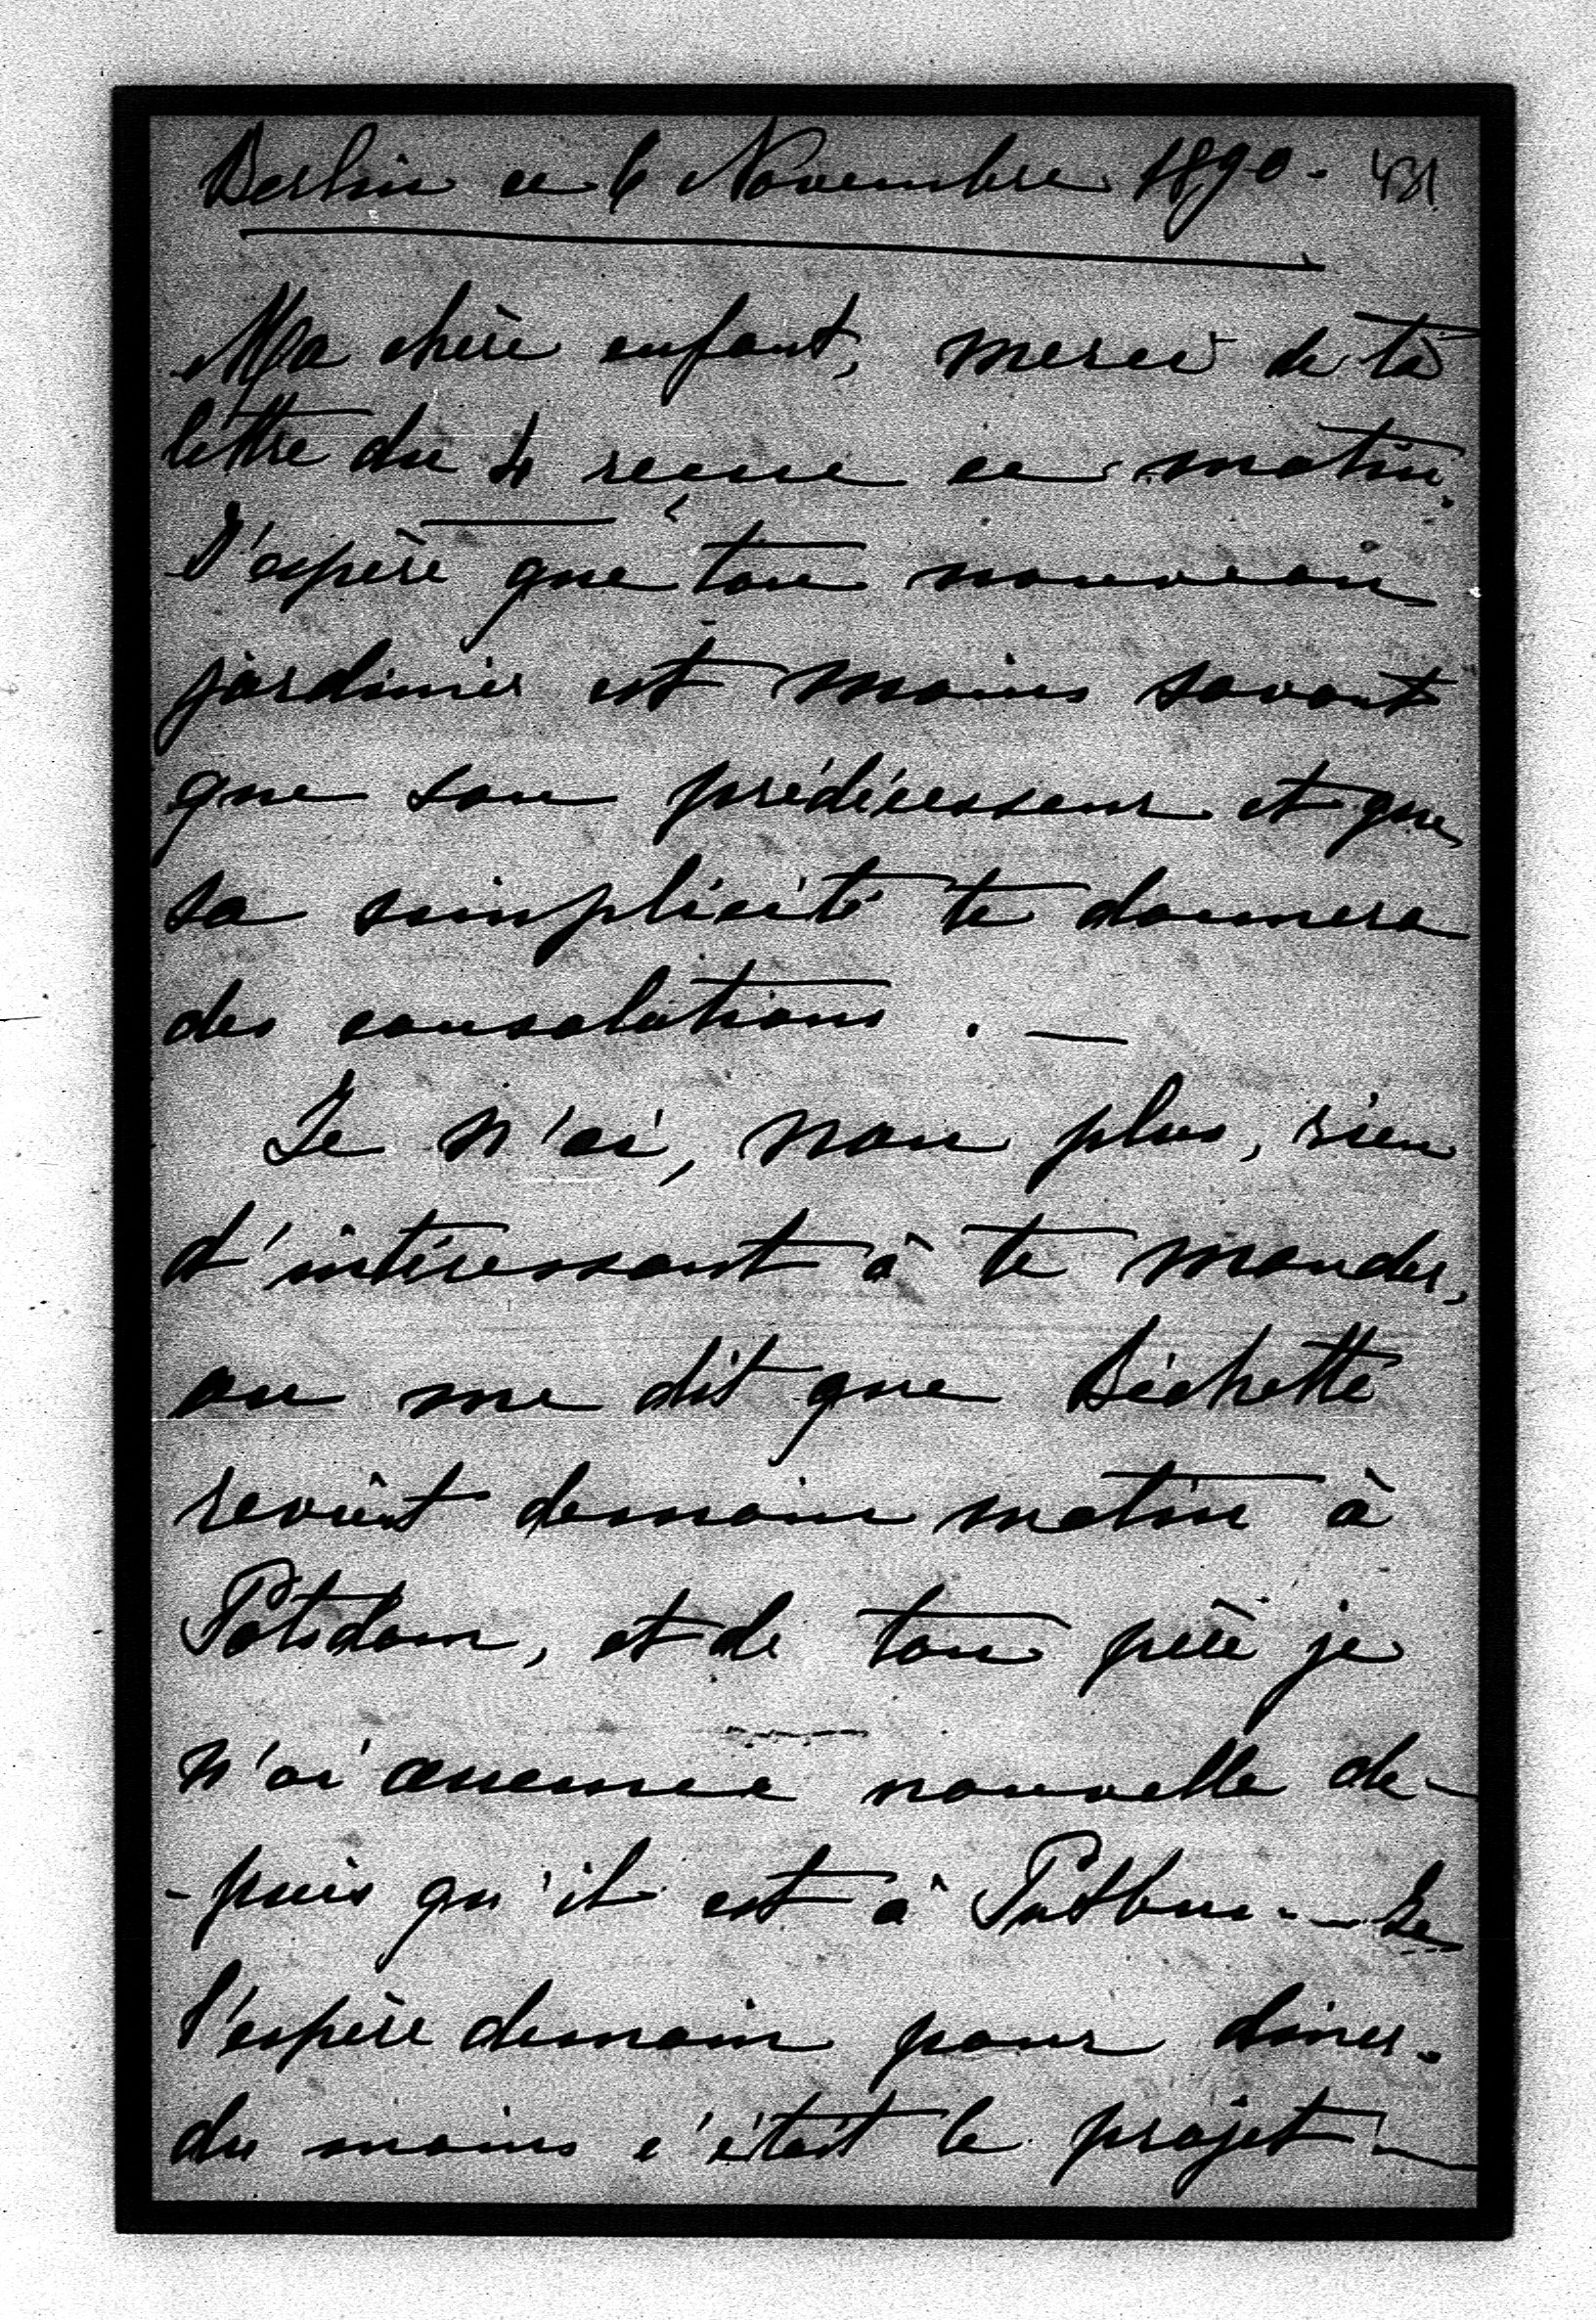 Berlin ce 6 Novembre 1890. 431
Ma chère enfant, merci de ta
lettre du 4 reçue ce matin.
J'espère que ton nouveau
jardinier est moins savant
que son prédécesseur et que
sa simplicité te donnera
des consolations. —
Je n'ai, non plus, rien
d'intéressant à te mander,
on me dit que Bichette
revient demain matin à
Potsdam, et de ton père je
n'ai aucune nouvelle de-
-puis qu'il est à Putbus. — Je
l'espère demain pour diner.
du moins c'était le projet —